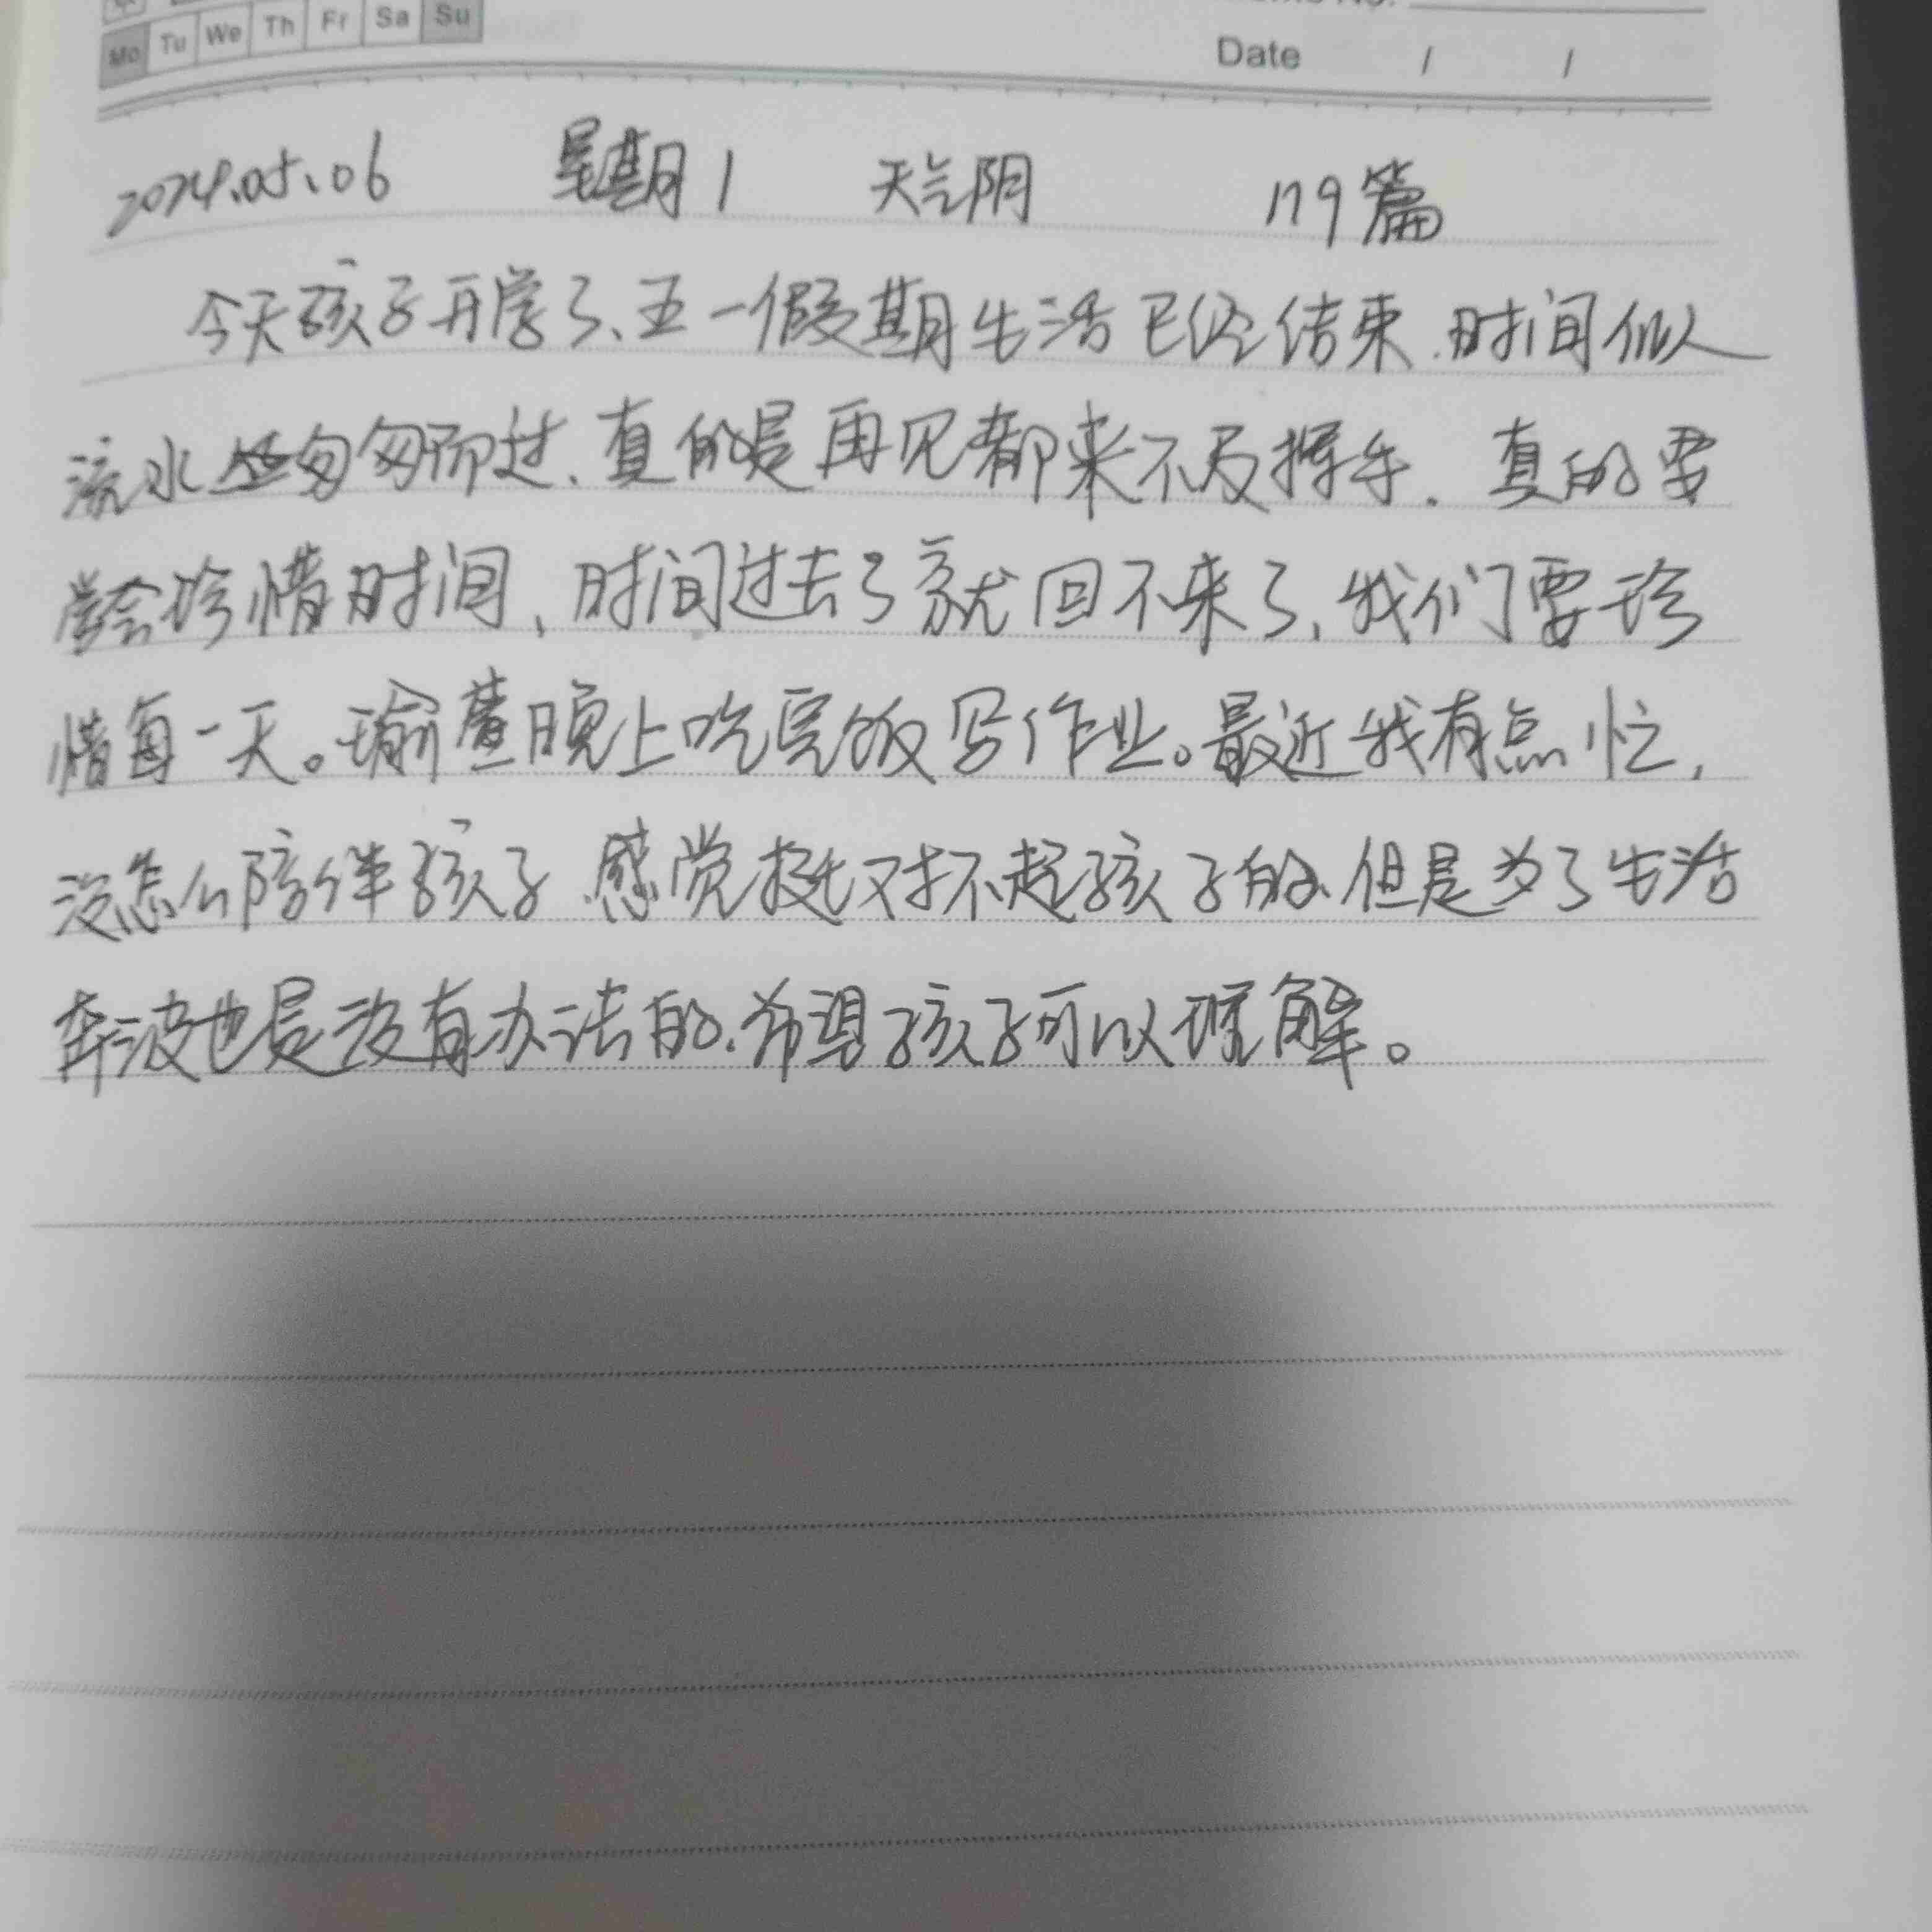 Mo Tu We Th Fr Sa Su
Date / /
2024.05.06 星期1 天气阴 179篇
今天孩子开学了、五一假期生活已经结束.时间似
流水匆匆而过、真的是再见都来不及挥手.真的要
学会珍惜时间,时间过去了就回不来了,我们要珍
惜每一天。瑜萱晚上吃完饭写作业。最近我有点忙,
没怎么陪伴孩子.感觉挺对不起孩子的.但是为了生活
奔波也是没有办法的.希望孩子可以理解。